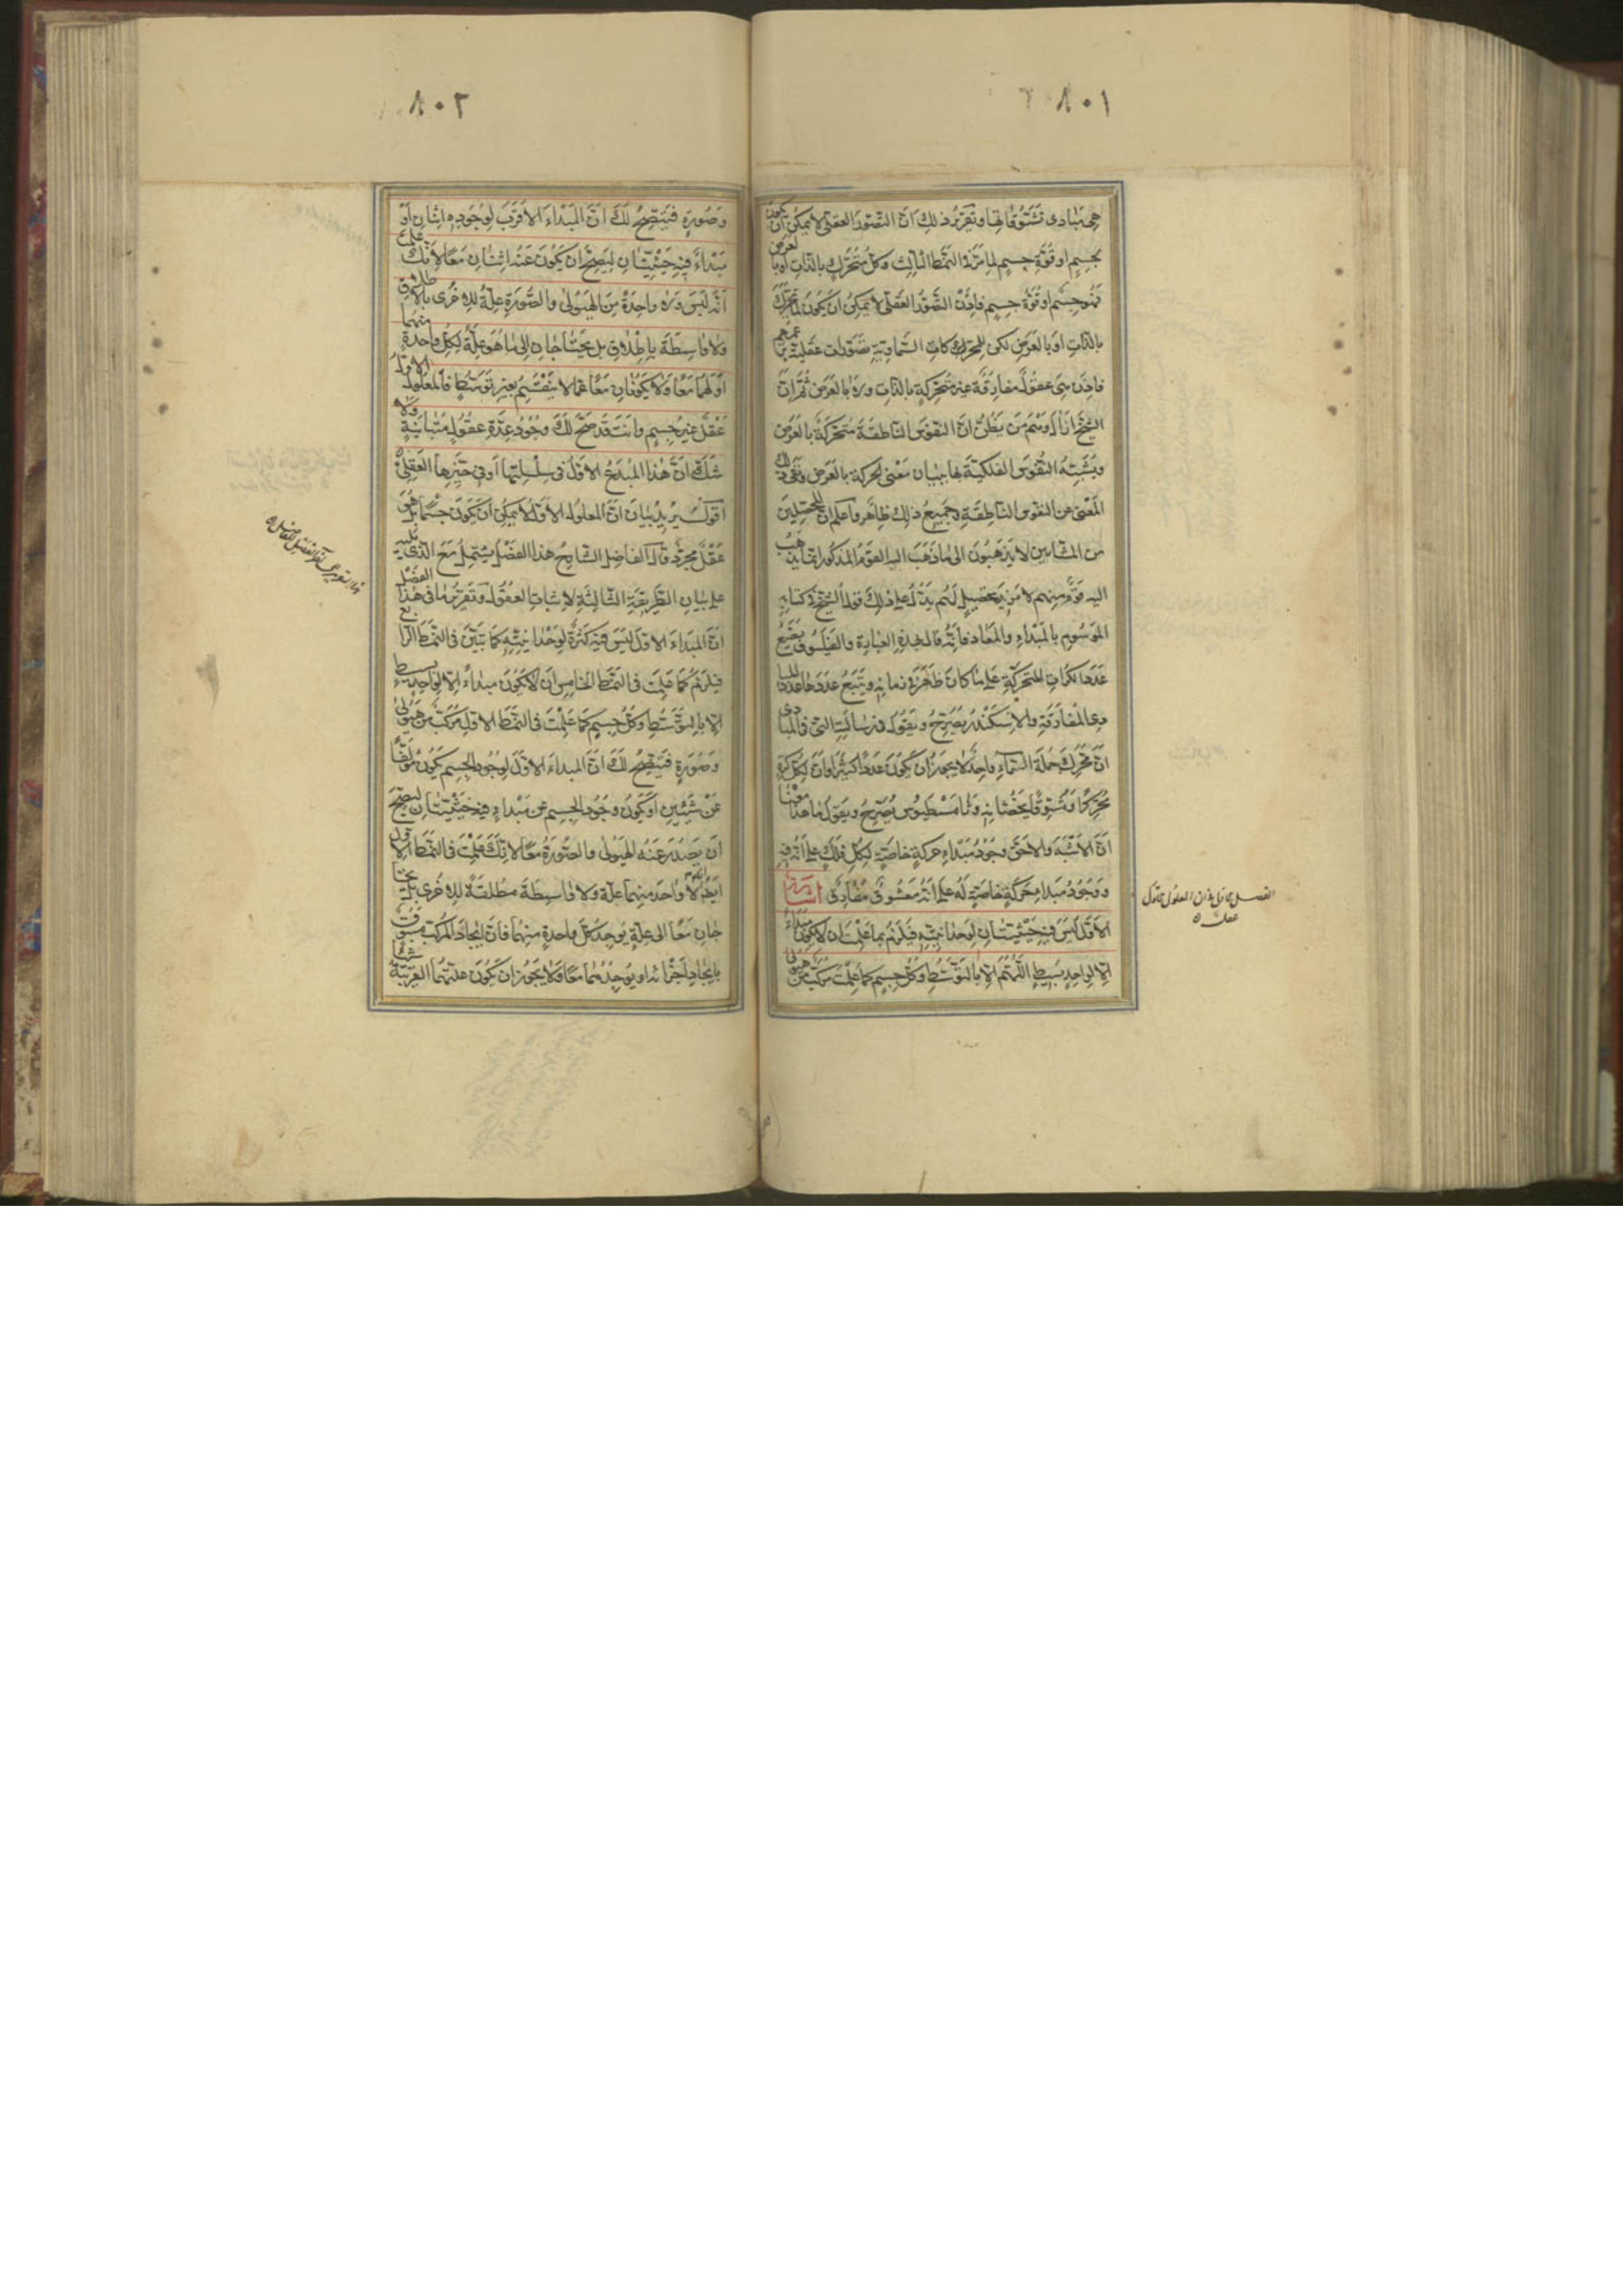 ٨٠١
هي مبادى تشوقاتها وتقرير ذلك ان التصور العقلى لا يمكن ان يكون
بجسم او قوة جسم لما مر فى النمط الثالث وكل متحرك بالذات او بالعرض
فهو جسم او قوة جسم فاذن التصور العقلى لا يمكن ان يكون لمتحرك
بالذات او بالعرض لكن للمحركات السماوية تصورات عقلية
فاذن هى عقول مفارقة غير متحركة بالذات ولا بالعرض ثم ان
الشيخ ازال وهم من يظن ان النفوس الناطقة متحركة بالعرض
ويشبه النفوس الفلكية بها ببيان معنى الحركة بالعرض ونفى ذلك
المعنى عن النفوس الناطقة وجميع ذلك ظاهر واعلم ان المحصلين
من المشايين لا يذهبون الى ما ذهب اليه القوم المذكور انما يذهب
اليه قوم منهم لا مزيد تحصيل لهم يدل على ذلك قول الشيخ فى كتابه
الموسوم بالمبداء والمعاد فانه قال بهذه العبارة والفيلسوف يضع
عدد الكرات المتحركة على ما كان ظهر فى زمانه ويتبع عددها عدد المبا
دى المفارقة والاسكندر يصرح ويقول فى رسالته التى فى المبادى
ان محرك جملة السماء واحد لا يجوز ان يكون عددا كثيرا وان لكل كرة
محركا ومتشوقا يخصانه وثامسطيوس يصرح ويقول ما هذا معناه
ان الاشبه والاحق وجود مبداء حركة خاصية لكل فلك على انه فيه
ووجود مبداء حركة خاصية له على انه معشوق مفارق اشارة
الاول ليس فيه حيثيتان لوحدانيته فيلزم بما علمت ان لا يكون مبداء
الا لواحد بسيط اللهم الا بالتوسط وكل جسم كما علمت مركب من هيولى
عقل
٨٠٢
وصورة فيتضح لك ان المبداء الاقرب لوجوده اثنان او
مبداء فيه حيثيتان ليصح ان يكون عنه اثنان معا لانك علمت
انه ليس ولا واحدة من الهيولى والصورة علة للاخرى بالاطلاق
ولا واسطة باطلاق بل يحتاجان الى ما هو علة لكل واحدة منهما
او لهما معا ولا يكونان معا عما لا ينقسم بغير توسط فالمعلول الاول
عقل غير جسم وانت قد صح لك وجود عدة عقول متباينة ولا
شك ان هذا المبدع الاول فى سلسلتها او فى حيزها العقلى
اقول يريد بيان ان المعلول الاول لا يمكن ان يكون جسما بل هو
عقل مجرد قال الفاضل الشارح هذا الفصل يشتمل مع الذى يليه
على بيان الطريقة الثالثة لاثبات العقول وتقرير ما فى هذا الفصل
ان المبداء الاول ليس فيه كثرة لوحدانيته كما بتين فى النمط الرابع
فيلزم كما علمت فى النمط الخامس ان لا يكون مبداء الا لواحد بسيط
الا بالتوسط وكل جسم كما علمت فى النمط الاول مركب من هيولى
وصورة فيتضح لك ان المبداء الاول لوجود الجسم يكون مؤلفا
عن شيئين او يكون وجود الجسم عن مبداء فيه حيثيتان ليصح
ان يصدر عنه الهيولى والصورة معا لانك علمت فى النمط الاول
انه لا واحد منهما علة ولا واسطة مطلقة للاخرى بل يحتا
جان معا الى علة يوجد كل واحدة منهما فان ايجاد المركب مسبوق
بايجاد اجزائه او يوجدهما معا فلا يجوز ان يكون علتهما القريبة شيئا